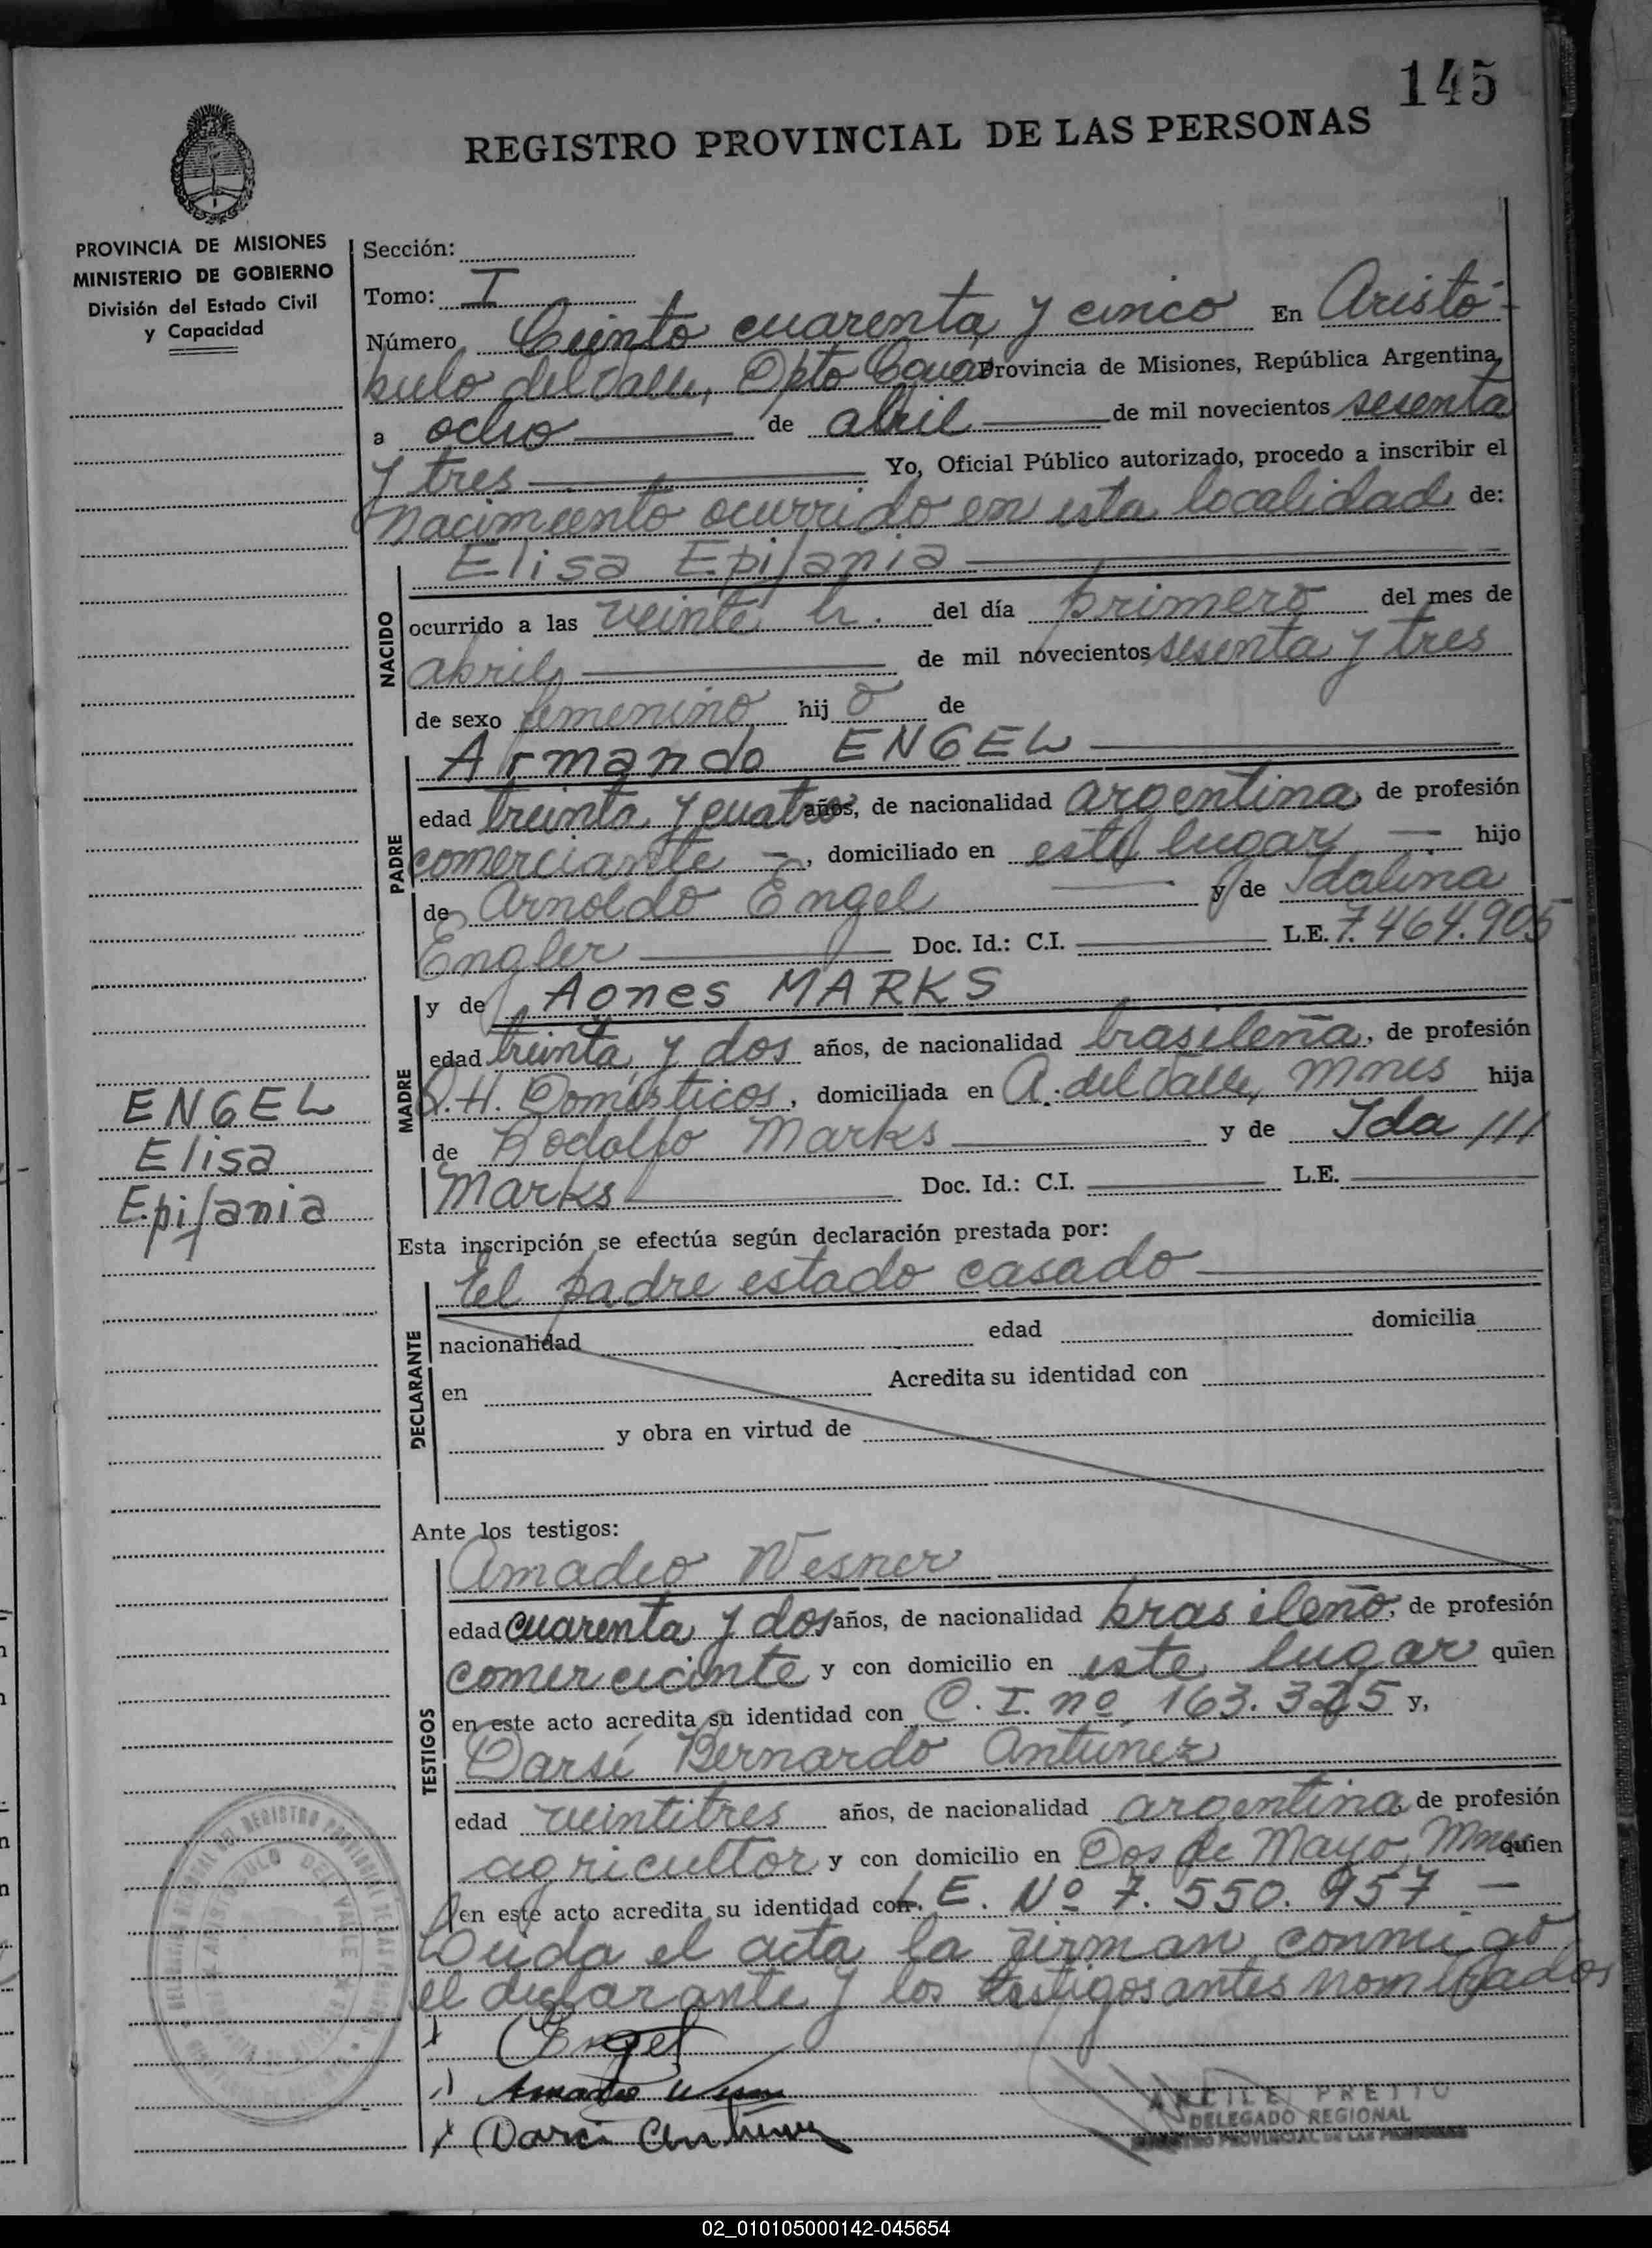 145
REGISTRO PROVINCIAL DE LAS PERSONAS
PROVINCIA DE MISIONES
MINISTERIO DE GOBIERNO
División del Estado Civil
y Capacidad
Sección:
Tomo: I
Número Ciento cuarenta y cinco En Aristó-
bulo del Valle, Dpto Cguás Provincia de Misiones, República Argentina,
a ocho de abril de mil novecientos sesenta
y tres Yo, Oficial Público autorizado, procedo a inscribir el
nacimiento ocurrido en esta localidad de:
NACIDO
Elisa Epifania
ocurrido a las veinte h. del día primero del mes de
abril de mil novecientos sesenta y tres
de sexo femenino hij o de
PADRE
Armando ENGEL
edad treinta y cuatro años, de nacionalidad argentina, de profesión
comerciante, domiciliado en este lugar hijo
de Arnoldo Engel y de Idalina
Engler Doc. Id.: C.I. L.E. 7.464.905
MADRE
y de Agnes MARKS
edad treinta y dos años, de nacionalidad brasileña, de profesión
Q.H. Domésticos, domiciliada en A. del Valle, Mnes hija
de Rodolfo Marks y de Ida ///
Marks Doc. Id.: C.I. L.E.
ENGEL
Elisa
Epifania
Esta inscripción se efectúa según declaración prestada por:
DECLARANTE
el padre estado casado
nacionalidad edad domicilia
en Acredita su identidad con
y obra en virtud de
Ante los testigos:
TESTIGOS
Amadeo Wesner
edad cuarenta y dos años, de nacionalidad brasileño, de profesión
comerciante y con domicilio en este lugar quien
en este acto acredita su identidad con C.I. nº 163.325 y,
Darsí Bernardo Antúnez
edad veintitres años, de nacionalidad argentina, de profesión
agricultor y con domicilio en Dos de Mayo, Mnes quien
en este acto acredita su identidad con L.E. Nº 7.550.957 —
Leida el acta la firman conmigo
el declarante y los testigos antes nombrados
Engel
Amadeo Wesner
Darci Antunez
PRETTO
DELEGADO REGIONAL
REGISTRO PROVINCIAL DE LAS PERSONAS
ARISTOBULO DEL VALLE
02_010105000142-045654